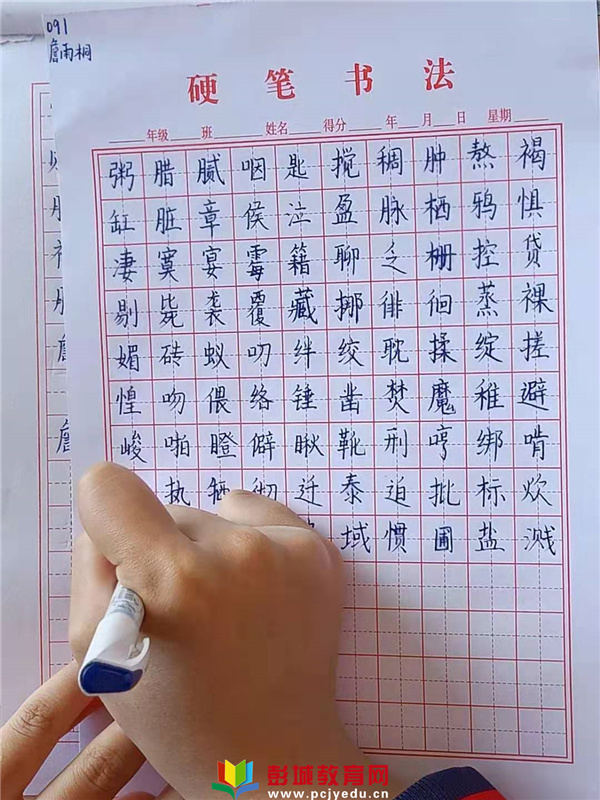 091
詹雨桐
硬笔书法
年级 班 姓名 得分 年 月 日 星期
粥腊腻咽匙搅稠肿熬褐
缸脏章侯泣盈脉栖鸦惧
凄寞宴霉籍聊乏栅控贷
剔毙袭覆藏挪徘徊蒸裸
媚砖蚁叨绊绞耽揉绽搓
惶吻偎络锤凿焚魔稚避
峻啪瞪僻瞅靴刑哼绑啃
执 彻迁泰迫批标炊
域惯圃盐溅
彭城教育网
www.pcjyedu.cn